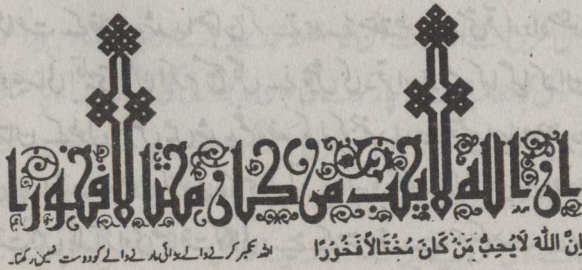 ان الله لا يحب من كان مختالا فخورا
اِنَّ اللّٰهَ لَايُحِبُّ مَنْ كَانَ مُخْتَالاً فَخُوْرًا اللہ تکبر کرنے والے بڑائی مارنے والے کو دوست نہیں رکھتا۔